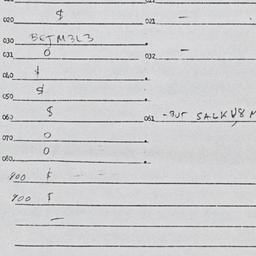 020 $ 021 -
030 BETM3L3
031 0 032 -
040 $
050 $
060 $ 061 -BUT SALK V8 M
070 0
080 0
900 $ - - -
900 $
-